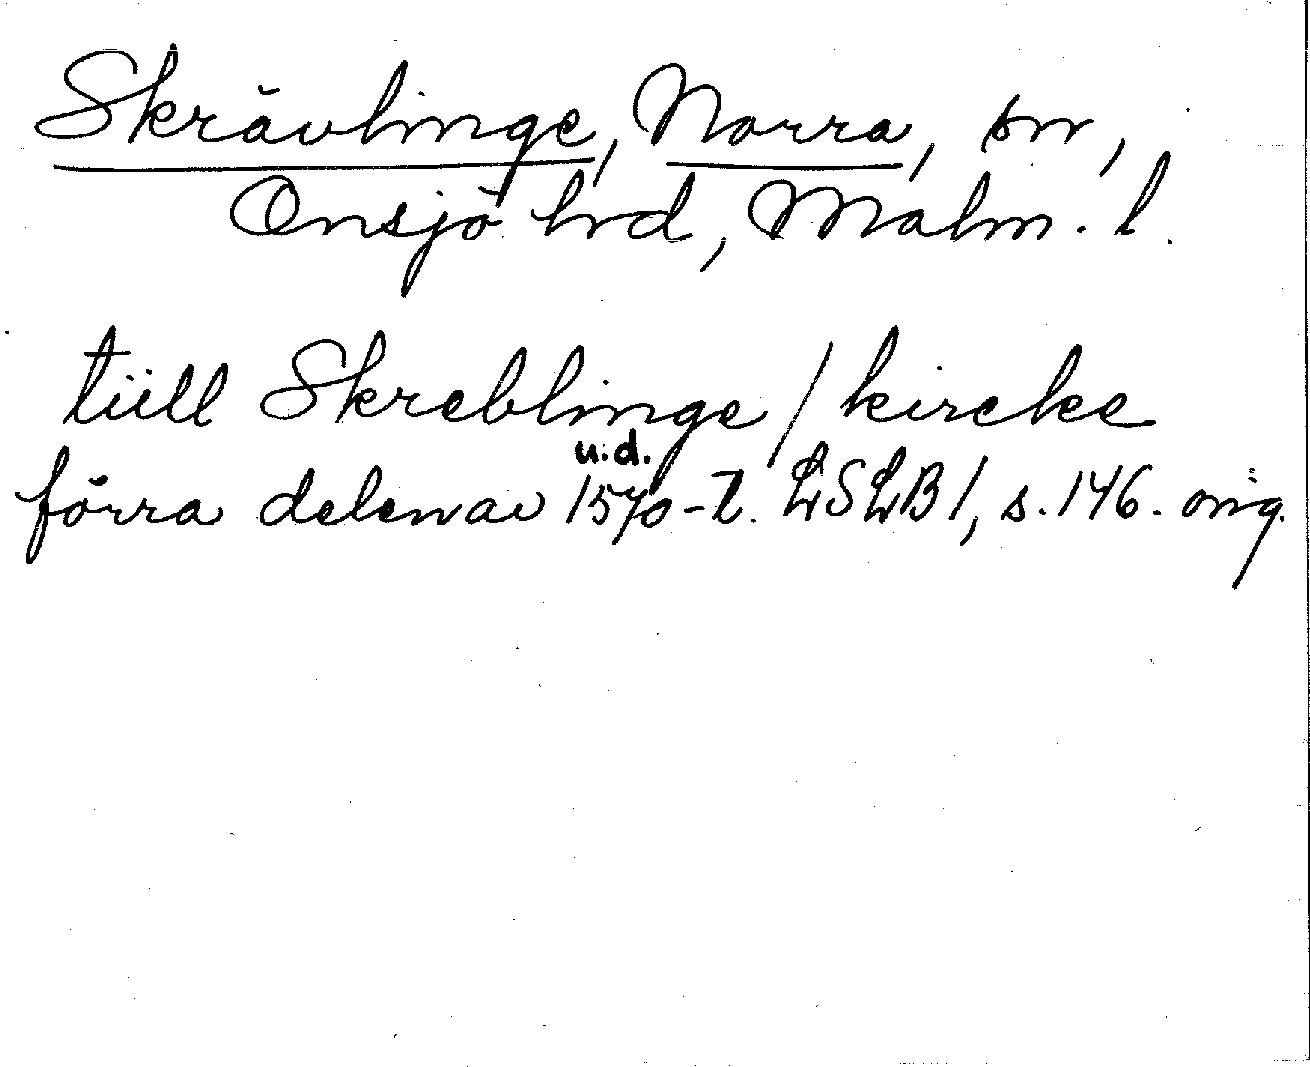 Skrävlinge, Norra, sn,
Onsjö hrd, Malm. l.
tiill Skreblinge / kircke
u.d.
förra delen av 1570-t. LSLB 1, s. 146. orig.